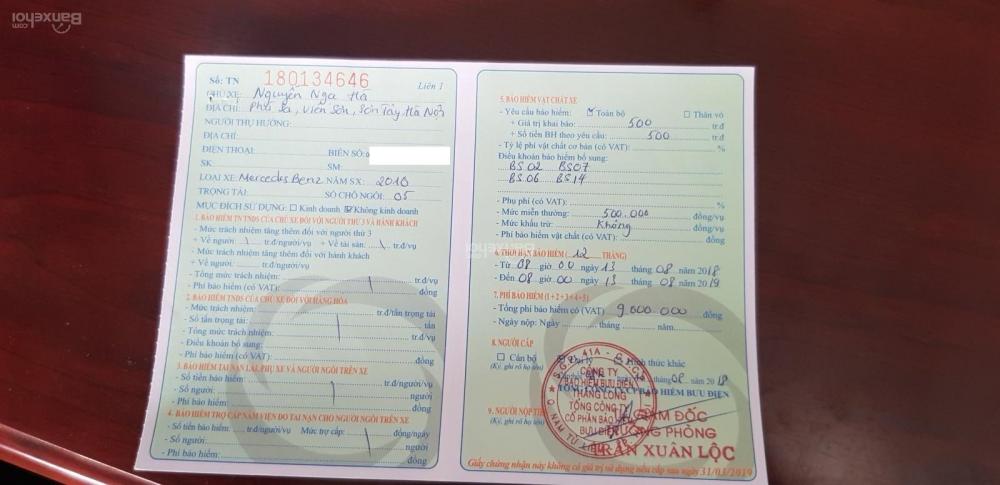 Banxehoi
.com
Số: TN 180134646 Liên 1
CHỦ XE: Nguyễn Nga Hà
ĐỊA CHỈ: Phù Sa, Viên Sơn, Sơn Tây, Hà Nội
NGƯỜI THỤ HƯỞNG:
ĐỊA CHỈ:
ĐIỆN THOẠI: BIỂN SỐ:
SK: SM:
LOẠI XE: Mercedes Benz NĂM SX: 2010
TRỌNG TẢI: SỐ CHỖ NGỒI: 05
MỤC ĐÍCH SỬ DỤNG: Kinh doanh Không kinh doanh
1. BẢO HIỂM TN TNDS CỦA CHỦ XE ĐỐI VỚI NGƯỜI THỨ 3 VÀ HÀNH KHÁCH
- Mức trách nhiệm tăng thêm đối với người thứ 3
+ Về người: \ tr.đ/người/vụ + Về tài sản: \ tr.đ/vụ
- Mức trách nhiệm tăng thêm đối với hành khách
+ Về người: tr.đ/người/vụ
- Tổng mức trách nhiệm: tr.đ/vụ
- Phí bảo hiểm (có VAT): đồng
2. BẢO HIỂM TNDS CỦA CHỦ XE ĐỐI VỚI HÀNG HÓA
- Mức trách nhiệm: tr.đ/tấn trọng tải
- Số tấn trọng tải: tấn
- Tổng mức trách nhiệm: tr.đ/vụ
- Điều khoản bổ sung:
- Phí bảo hiểm (có VAT): đồng
3. BẢO HIỂM TAI NẠN LÁI, PHỤ XE VÀ NGƯỜI NGỒI TRÊN XE
- Số tiền bảo hiểm: tr.đ/người/vụ
- Số người: người
- Phí bảo hiểm: đồng
4. BẢO HIỂM TRỢ CẤP NẰM VIỆN DO TAI NẠN CHO NGƯỜI NGỒI TRÊN XE
- Số tiền bảo hiểm: tr.đ/người/vụ Mức trợ cấp: đồng/ngày
- Số người: người
- Phí bảo hiểm: đồng
5. BẢO HIỂM VẬT CHẤT XE
- Yêu cầu bảo hiểm: Toàn bộ Thân vỏ
+ Giá trị khai báo: 500 tr.đ
+ Số tiền BH theo yêu cầu: 500 tr.đ
- Tỷ lệ phí vật chất cơ bản (có VAT): %
Điều khoản bảo hiểm bổ sung:
BS02 BS07
BS06 BS14
- Phụ phí (có VAT): %
- Mức miễn thường: 500.000 đồng/vụ
- Mức khấu trừ: Không đồng/vụ
- Phí bảo hiểm vật chất (có VAT): đồng
6. THỜI HẠN BẢO HIỂM ( 12 THÁNG)
- Từ 08 giờ 00 ngày 13 tháng 08 năm 2018
- Đến 08 giờ 00 ngày 13 tháng 08 năm 2019
7. PHÍ BẢO HIỂM (1+2+3+4+5)
- Tổng phí bảo hiểm có (VAT) 9.000.000 đồng
- Ngày nộp: Ngày tháng năm
8. NGƯỜI CẤP
Cán bộ Đại lý Hình thức khác
(Ký, ghi rõ họ tên) tháng 08 năm 2018
TỔNG CÔNG TY CP BẢO HIỂM BƯU ĐIỆN
CÔNG TY
BẢO HIỂM BƯU ĐIỆN
THĂNG LONG
TỔNG CÔNG TY
CỔ PHẦN BẢO HIỂM
BƯU ĐIỆN
9. NGƯỜI NỘP
(Ký, ghi rõ họ tên)
GIÁM ĐỐC
TRƯỞNG PHÒNG
TRẦN XUÂN LỘC
Giấy chứng nhận này không có giá trị sử dụng nếu cấp sau ngày 31/03/2019
Banxehoi
.com
Banxehoi
.com